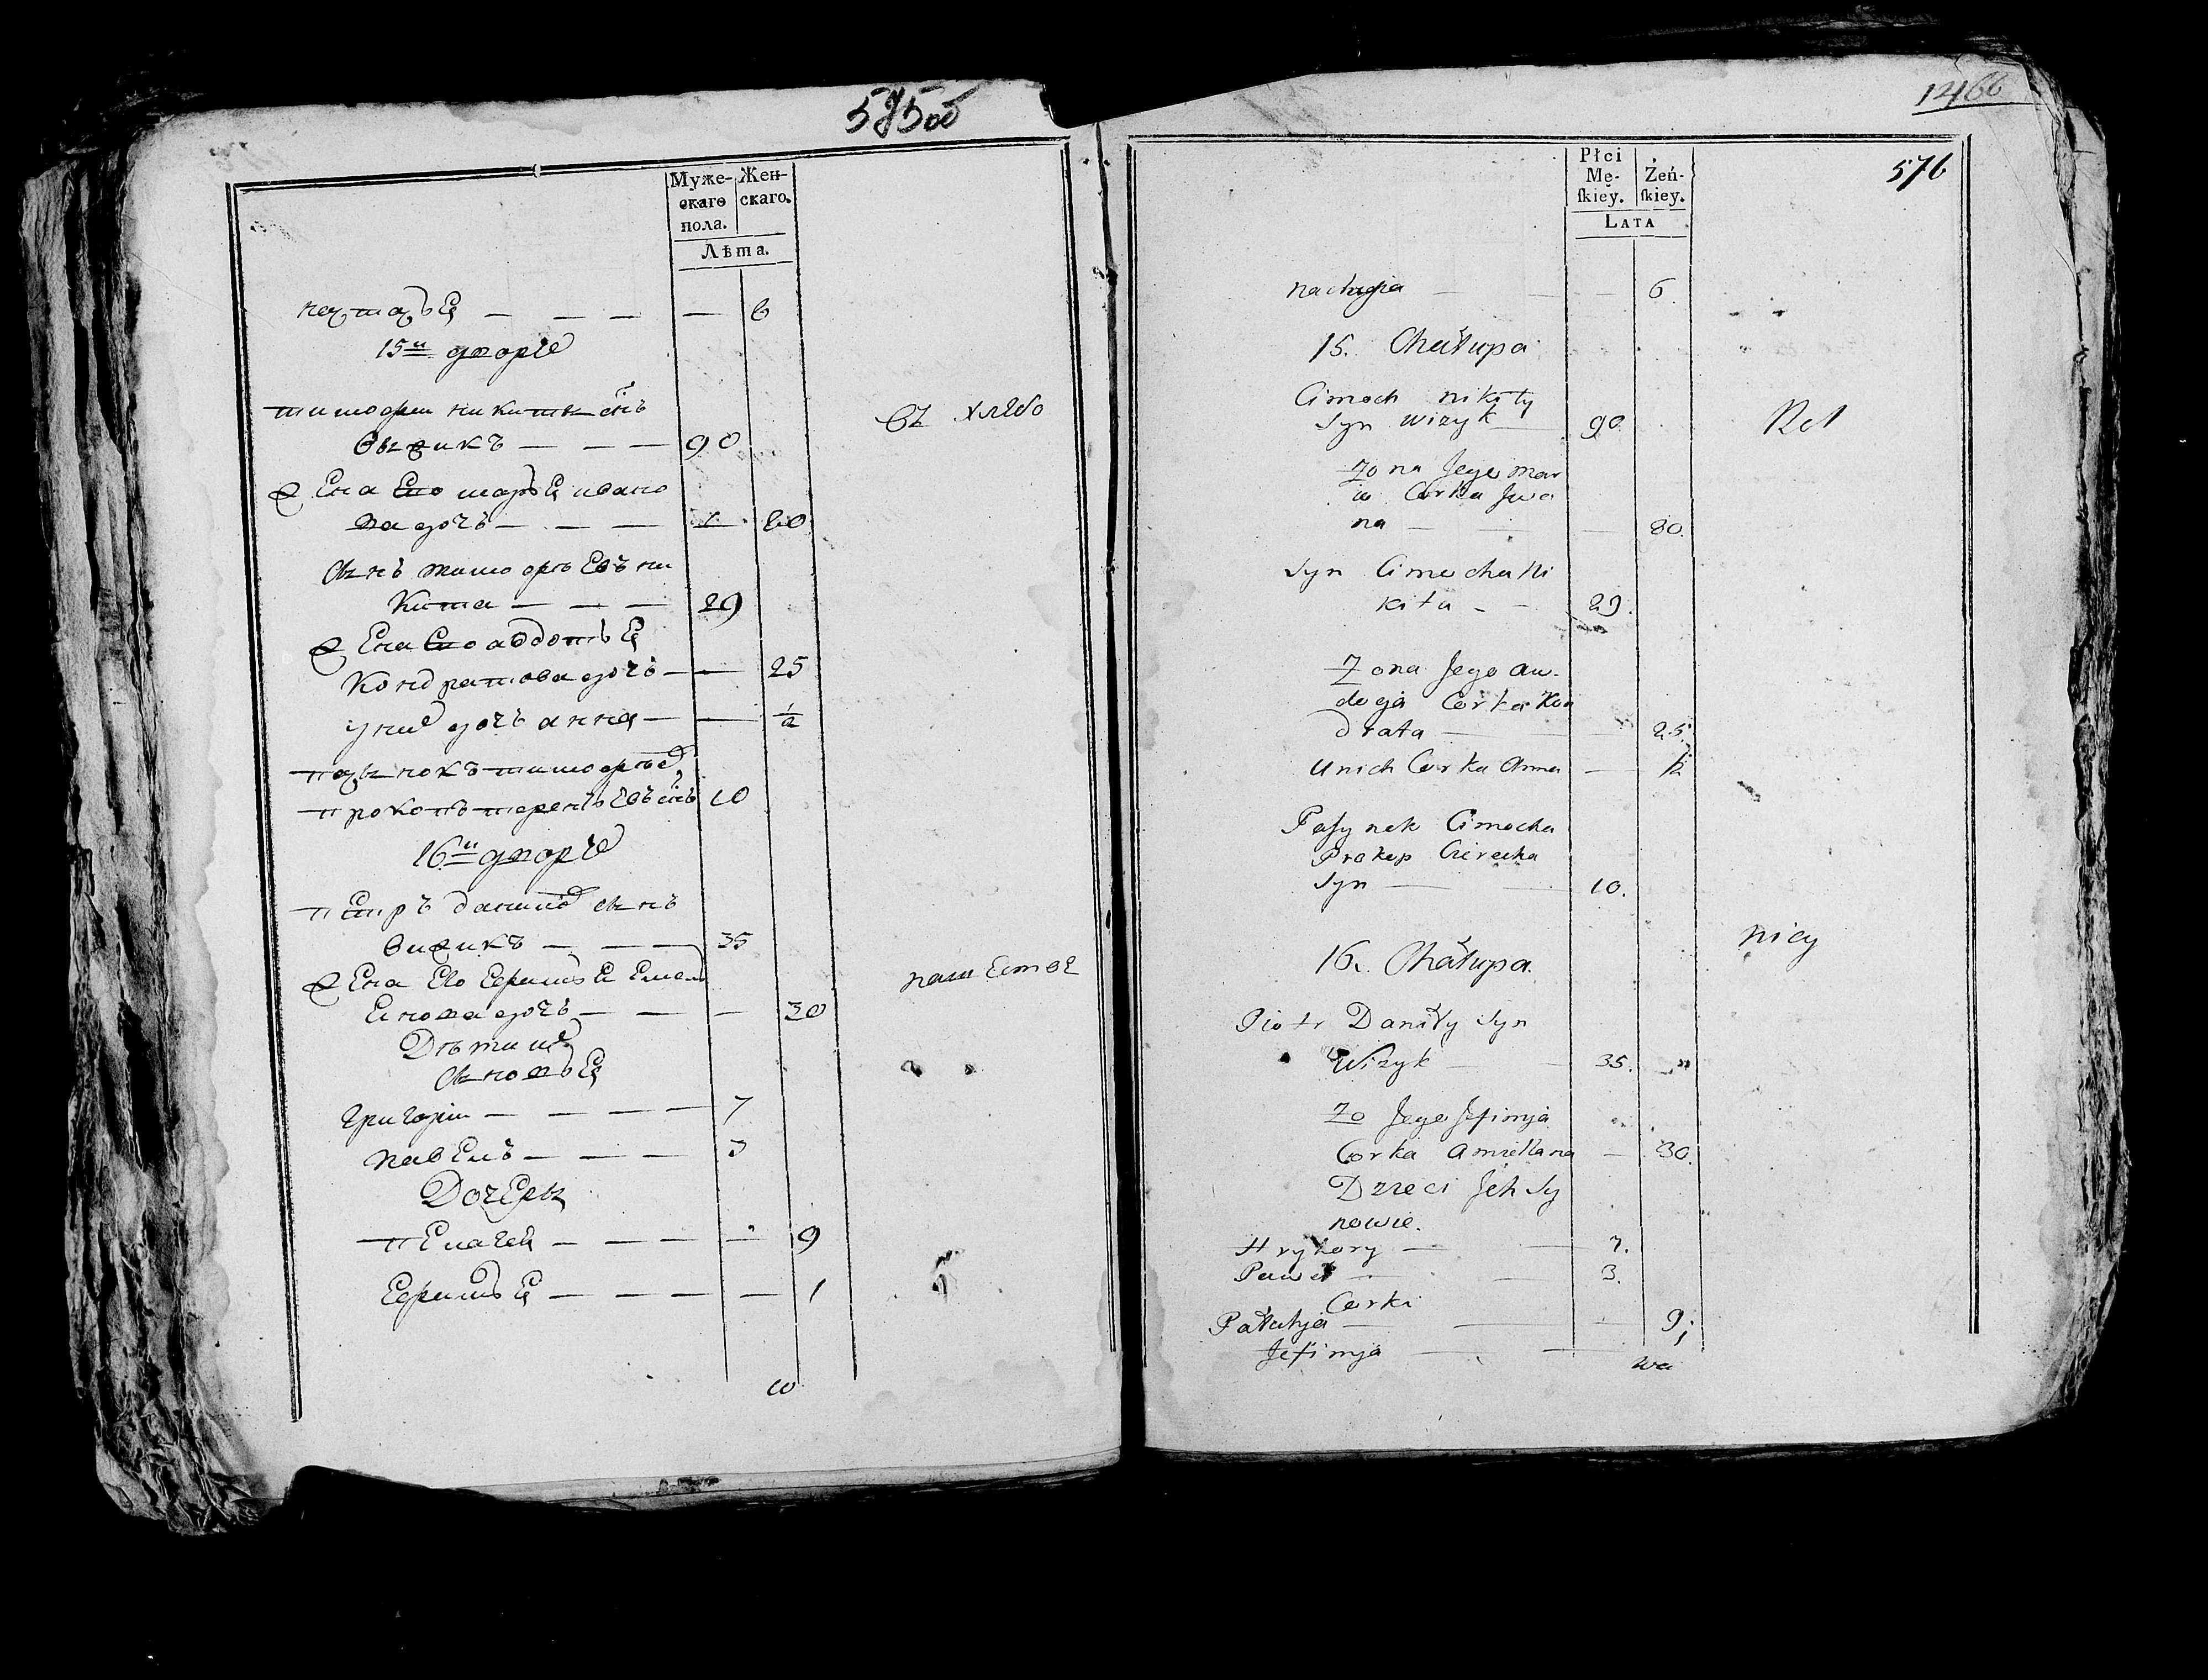 575об
Муже-
скаго
пола.
Жен-
скаго.
Лѣта.
6
15й дворъ
тимофеи никитинъ
Визикъ — — — 90
въ хлѣбо
Жена Его марья ивано
ва дочь — — — 80
Сынъ тимофѣевъ ни
кита — — — 29
Жена Его авдотья
Кондратова дочь — — 25
у них дочь анна — — 1/2
пасынокъ тимофеев
прокопъ терентьевъ 10
16й дворъ
петръ данилов сынъ
визикъ — — — 35
Жена Ево Ефимья Емель
янова дочь — — — 30
нашествѣ
Дѣти их
сыновья
григори — — — — 7
павелъ — — — 3
Дочери
пелагея — — — — 9
Ефимья — — — — 1
1466
576
Płci
Mę-
ſkiey.
Żeń-
ſkiey.
LATA
Nastazia — — — 6.
15. Chałupa
Cimoch Nikity
Syn Wizyk 90
Rol
Zona Jego Mar
ia Corka Jwa
na — — 80.
Syn Cimocha Ni
kita — — 29.
Zona Jego Au-
docja Corka Kon
drata — — 25.
Unich Corka Anna — 1/2
Pasynek Cimocha
Prokop Cierecha
Syn — — 10.
nicy
16. Chałupa.
Piotr Daniły Syn
Wizyk — — 35. „
Zo Jego Jefimja
Corka Amieliana — 30.
Dzieci Jch Sy
nowie.
Hryhory — — 7.
Paweł — — 3.
Corki
Pałahja — — — 9.
Jefimja — — 1
wa